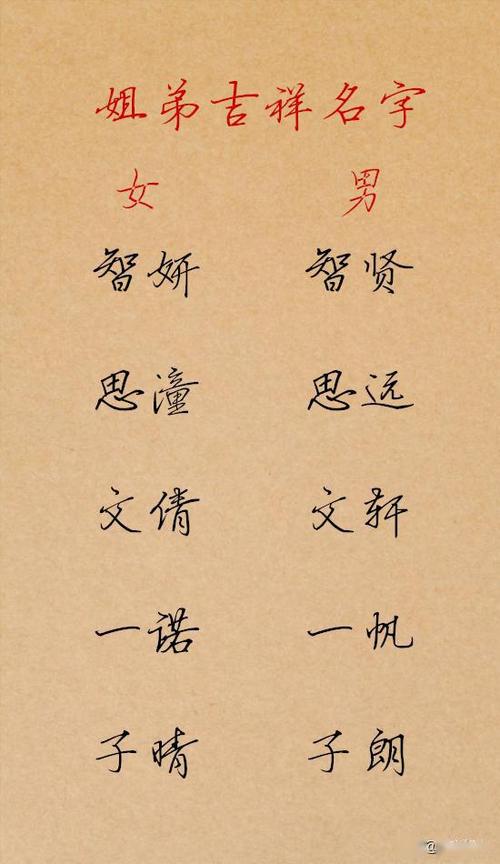 姐弟吉祥名字
女 男
智妍 智贤
思潼 思远
文倩 文轩
一诺 一帆
子晴 子朗
@